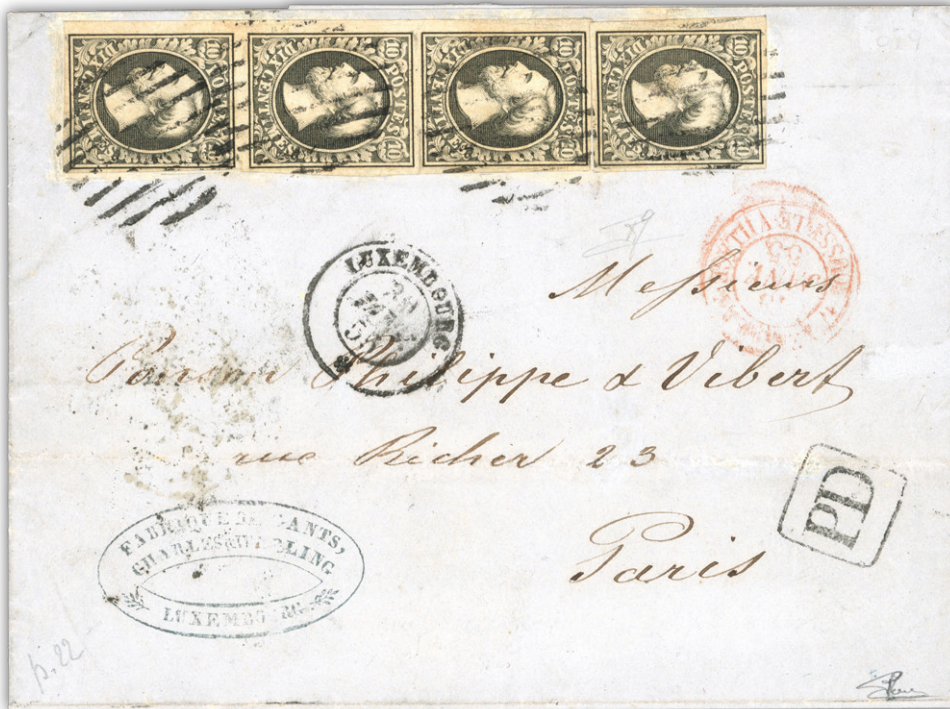 DIX CENTIMES 10 POSTES 10
DIX CENTIMES 10 POSTES 10
DIX CENTIMES 10 POSTES 10
DIX CENTIMES 10 POSTES 10
LUXEMBOURG
Messieurs
Poirson Philippe & Vibert
rue Richer 23
Paris
PD
FABRIQUE DE GANTS,
CHARLES
LUXEMBOURG
p. 22